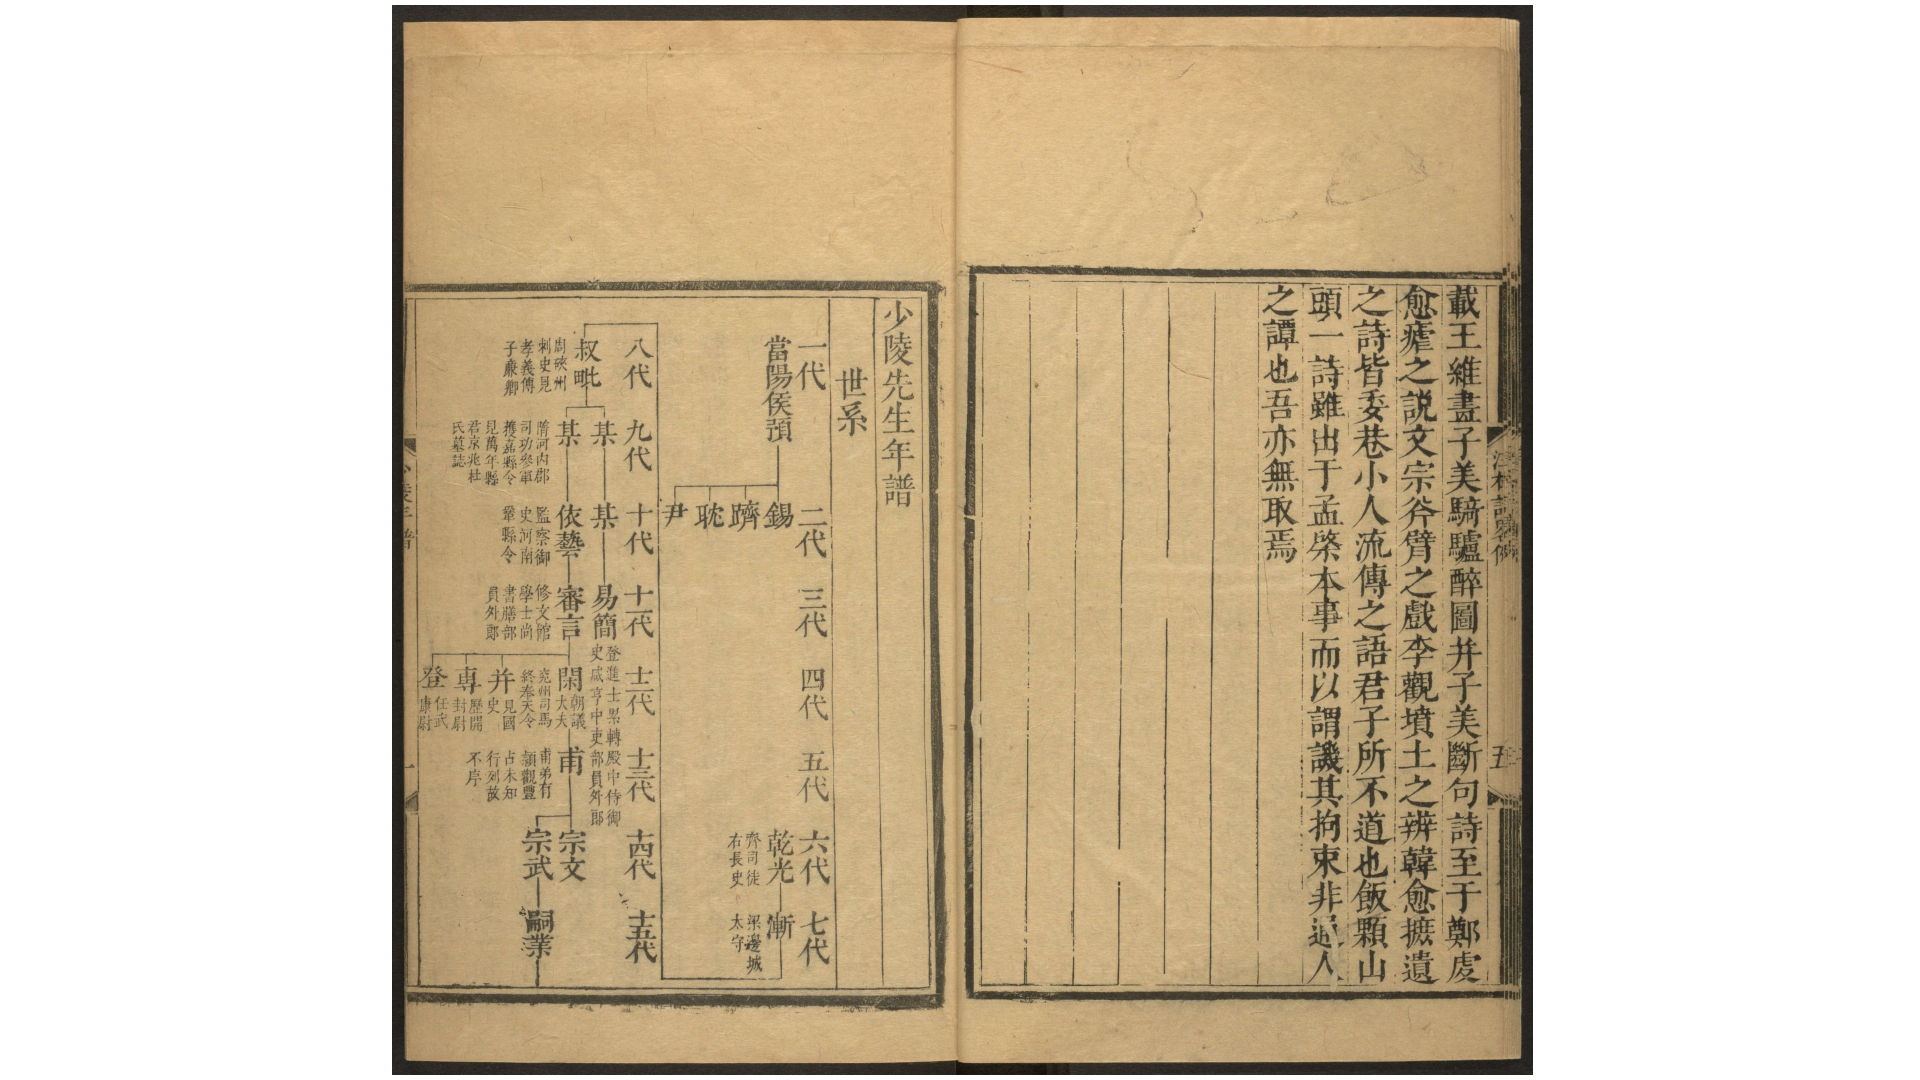 載王維畫子美騎驢醉圖并子美斷句詩至于鄭虔
愈瘧之説文宗斧臂之戲李觀墳土之辨韓愈摭遺
之詩皆委巷小人流傳之語君子所不道也飯顆山
頭一詩雖出于孟棨本事而以謂譏其拘束非通人
之譚也吾亦無取焉
五
少陵先生年譜
世系
一代
二代
三代
四代
五代
六代
七代
當陽侯預
錫
躋
耽
尹
乾光
齊司徒
右長史
漸
梁邊城
太守
八代
九代
十代
十一代
十二代
十三代
十四代
十五代
叔毗
周硤州
刺史見
孝義傳
子廉卿
某
某
易簡
登進士累轉殿中侍御
史咸亨中吏部員外郎
某
隋河内郡
司功參軍
獲嘉縣令
見萬年縣
君京兆杜
氏墓誌
依藝
監察御
史河南
鞏縣令
審言
修文館
學士尚
書膳部
員外郎
閑
朝議
大夫
兗州司馬
終奉天令
并
見國
史
專
歷開
封尉
登
任武
康尉
甫
甫弟有
頴觀豐
占未知
行列故
不序
宗文
宗武
嗣業
一